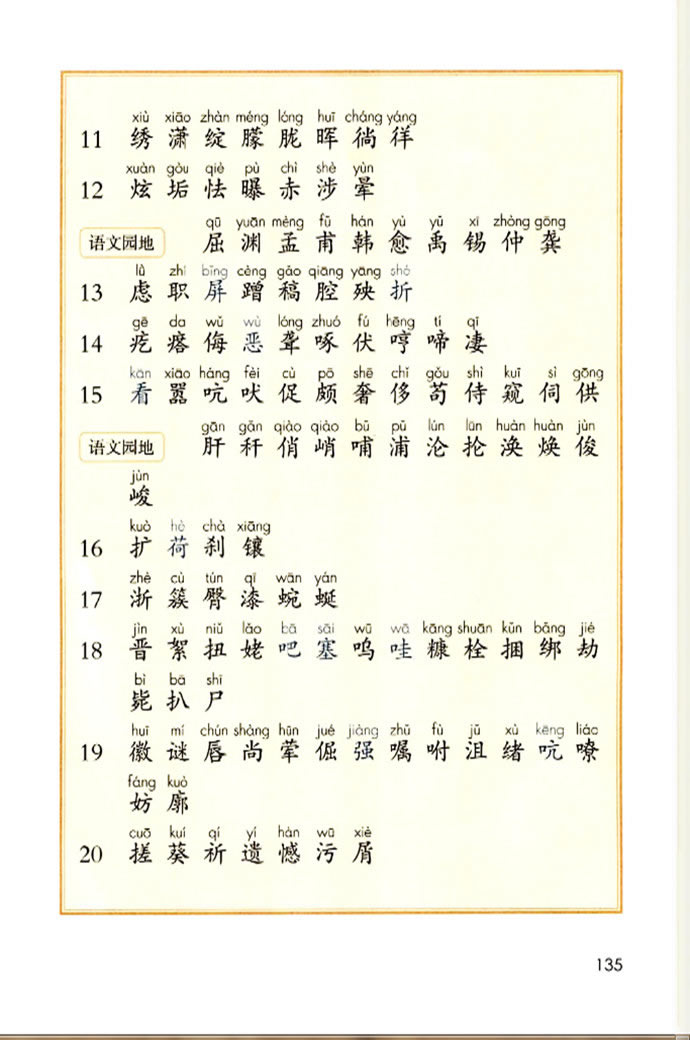 xiù xiāo zhàn méng lóng huī cháng yáng
11 绣 潇 绽 朦 胧 晖 徜 徉
xuàn gòu qiè pù chì shè yùn
12 炫 垢 怯 曝 赤 涉 晕
qū yuān mèng fǔ hán yù yǔ xī zhòng gōng
语文园地 屈 渊 孟 甫 韩 愈 禹 锡 仲 龚
lǜ zhí bǐng cèng gǎo qiāng yāng shé
13 虑 职 屏 蹭 稿 腔 殃 折
gē da wǔ wù lóng zhuó fú hēng tí qī
14 疙 瘩 侮 恶 聋 啄 伏 哼 啼 凄
kān xiāo háng fèi cù pō shē chǐ gǒu shì kuī sì gōng
15 看 嚣 吭 吠 促 颇 奢 侈 苟 侍 窥 伺 供
gān gǎn qiào qiào bǔ pǔ lún lūn huàn huàn jùn
语文园地 肝 秆 俏 峭 哺 浦 沦 抡 涣 焕 俊
jùn
峻
kuò hè chà xiāng
16 扩 荷 刹 镶
zhè cù tún qī wān yán
17 浙 簇 臀 漆 蜿 蜒
jìn xù niǔ lǎo bā sāi wū wā kāng shuān kǔn bǎng jié
18 晋 絮 扭 姥 吧 塞 呜 哇 糠 栓 捆 绑 劫
bì bā shī
毙 扒 尸
huī mí chún shàng hūn jué jiàng zhǔ fù jǔ xù kēng liáo
19 徽 谜 唇 尚 荤 倔 强 嘱 咐 沮 绪 吭 嘹
fáng kuò
妨 廓
cuō kuí qí yí hàn wū xiè
20 搓 葵 祈 遗 憾 污 屑
135